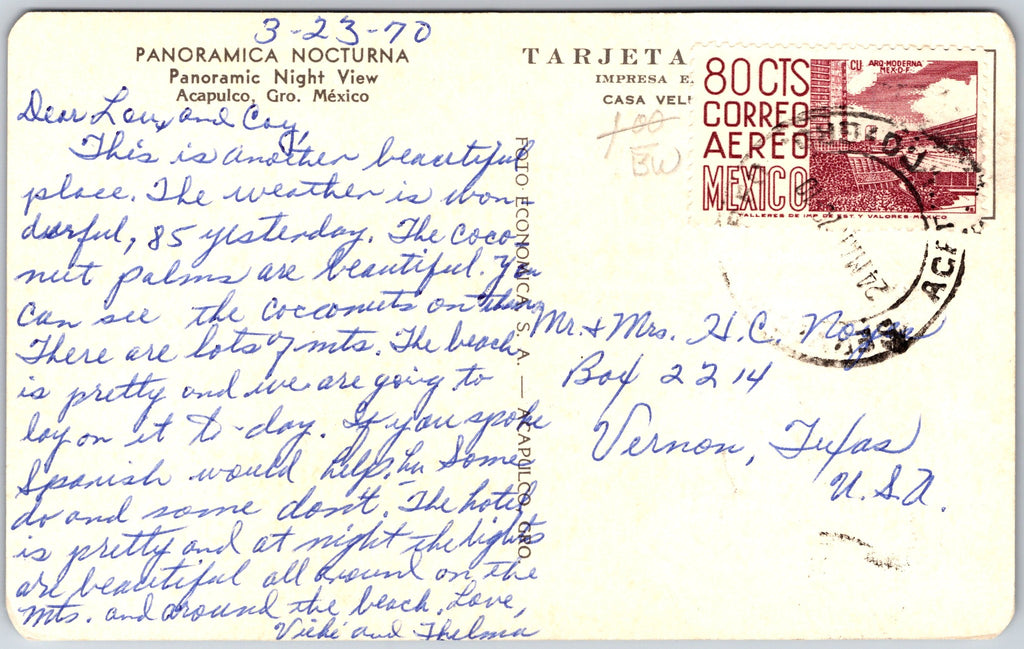 3-23-70
PANORAMICA NOCTURNA
Panoramic Night View
Acapulco, Gro. México
Dear Lou and Coy,
This is another beautiful
place. The weather is won
derful, 85 yesterday. The coco-
nut palms are beautiful. You
can see the coconuts on them
There are lots of mts. The beach
is pretty and we are going to
lay on it to-day. If you spoke
Spanish would help. Some
do and some don't. The hotel
is pretty and at night the lights
are beautiful all around on the
mts. and around the beach. Love,
Vicki and Thelma
FOTO-ECONOMICA, S. A. — ACAPULCO, GRO.
TARJETA
IMPRESA E
CASA VEL
1.00
BW
80 CTS
CORREO
AEREO
MEXICO
CU ARQ-MODERNA
MEX-D-F-
TALLERES DE IMP DE EST. Y VALORES MEXICO
24 MAR
Mr. & Mrs. H. C.
Box 2214
Vernon, Texas
U.S.A.